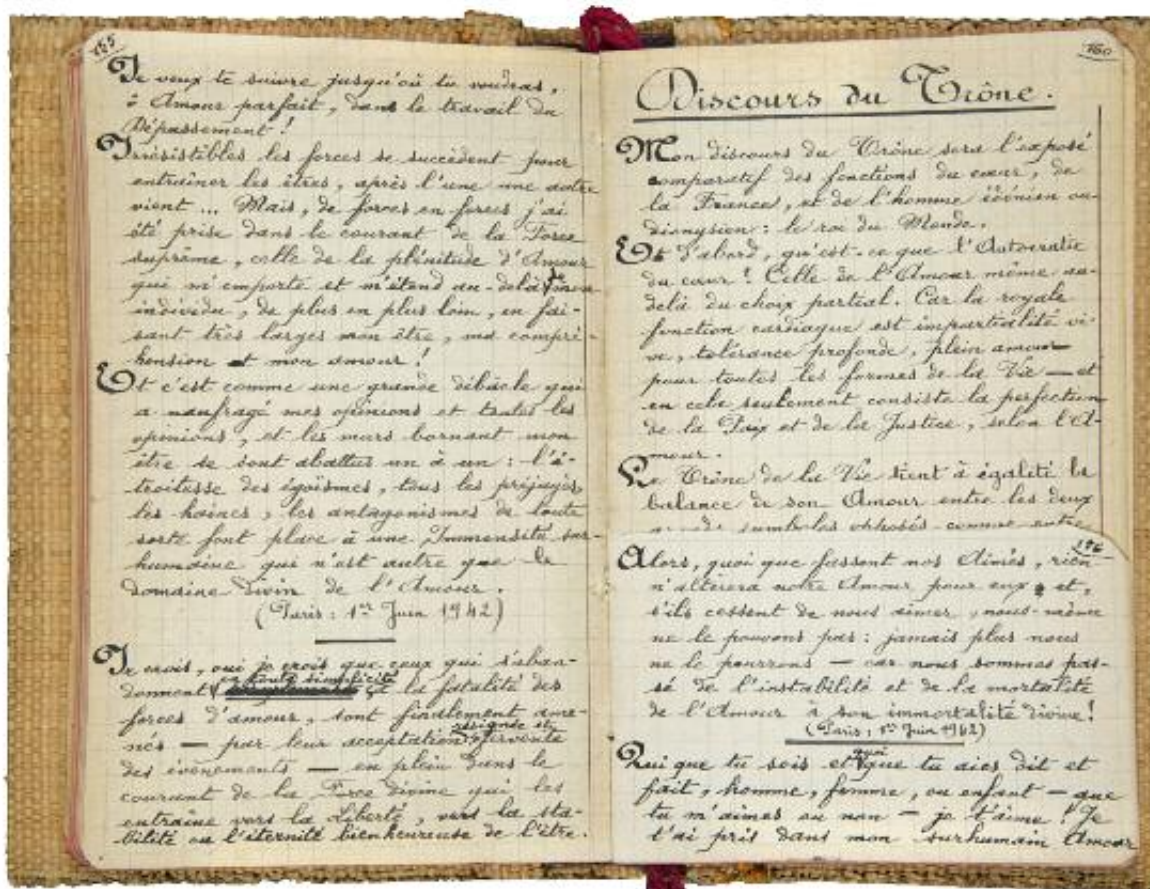 155
Je veux te suivre jusqu'où tu voudras,
ô Amour parfait, dans le travail du
Dépassement !
Irrésistibles les forces se succèdent pour
entraîner les êtres, après l'une une autre
vient ... Mais, de forces en forces j'ai
été prise dans le courant de la Force
suprême, celle de la plénitude d'Amour
qui m'emporte et m'étend au-delà de mon
individu, de plus en plus loin, en fai-
sant très larges mon être, ma compré-
hension et mon amour !
Et c'est comme une grande débâcle qui
a naufragé mes opinions et toutes les
opinions, et les murs bornant mon
être se sont abattus un à un : l'é-
troitesse des égoïsmes, tous les préjugés,
les haines, les antagonismes de toute
sorte font place à une Immensité sur-
humaine qui n'est autre que le
domaine divin de l'Amour.
(Paris : 1er Juin 1942)
Je crois, oui je crois que ceux qui s'aban-
donnent en toute simplicité à la fatalité des
forces d'amour, sont finalement ame-
nés — par leur acceptation résignée et fervente
des événements — en plein dans le
courant de la Force divine qui les
entraîne vers la Liberté, vers la sta-
bilité ou l'éternité bienheureuse de l'être.
160
Discours du Trône.
Mon discours du Trône sera l'exposé
comparatif des fonctions du cœur, de
la France, et de l'homme ou
dionysien : le roi du Monde.
Et d'abord, qu'est-ce que l'Autocratie
du cœur ! Celle de l'Amour même au-
delà du choix partial. Car la royale
fonction cardiaque est impartialité vi-
ve, tolérance profonde, plein amour
pour toutes les formes de la Vie — et
en cela seulement consiste la perfection
de la Paix et de la Justice, selon l'A-
mour.
Le Trône de la Vie tient à égalité la
balance de son Amour entre les deux
symboles opposés comme entre
176
Alors, quoi que fassent nos Aimés, rien
n'altérera notre Amour pour eux et,
s'ils cessent de nous aimer, nous-même
ne le pouvons pas : jamais plus nous
ne le pourrons — car nous sommes pas-
sé de l'instabilité et de la mortalité
de l'Amour à son immortalité divine !
(Paris : 1er Juin 1942)
Qui que tu sois et quoi que tu aies dit et
fait, homme, femme, ou enfant — que
tu m'aimes ou non — je t'aime ! Je
t'ai pris dans mon surhumain Amour